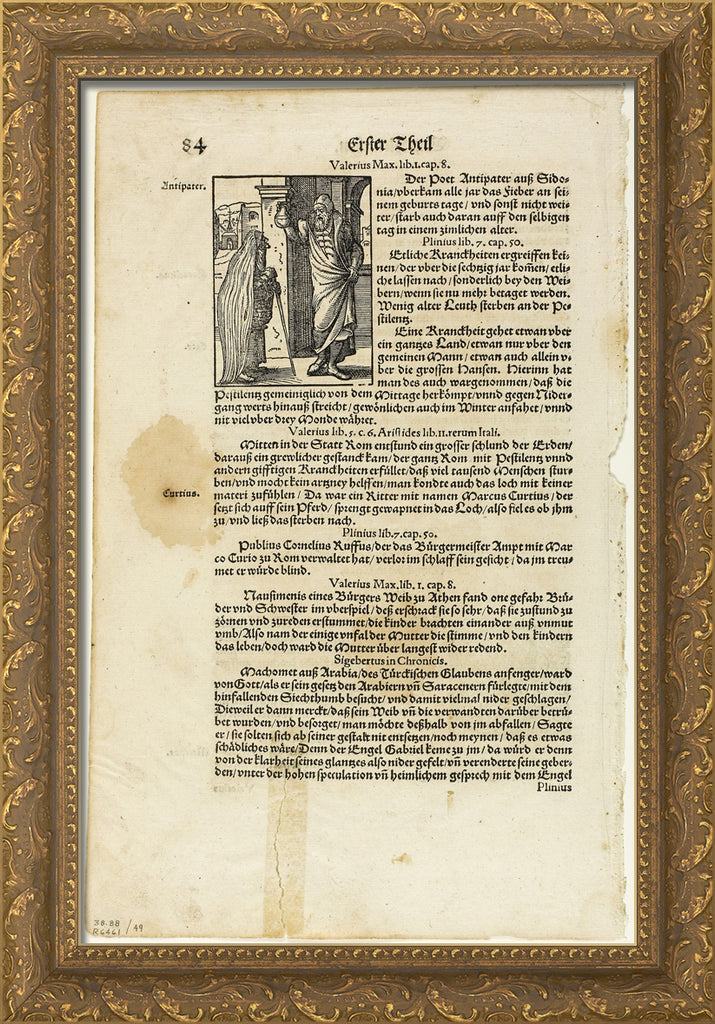 84
Erster Theil
Valerius Max. lib.1.cap. 8.
Antipater.
Der Poet Antipater auß Sido-
nia/vberkam alle jar das Fieber an sei-
nem geburts tage/ vnd sonst nicht wei-
ter/starb auch daran auff den selbigen
tag in einem zimlichen alter.
Plinius lib. 7. cap. 50.
Etliche Kranckheiten ergreiffen kei-
nen/der vber die sechtzig jar kom̃en/etli-
che lassen nach/sonderlich bey den Wei-
bern/wenn sie nu mehr betaget werden.
Wenig alter Leuth sterben an der Pe-
stilentz.
Eine Kranckheit gehet etwan vber
ein gantzes Land/etwan nur vber den
gemeinen Mann/etwan auch allein v-
ber die grossen Hansen. Hierinn hat
man des auch wargenommen/daß die
Pestilentz gemeiniglich von dem Mittage herkömpt/vnnd gegen Nider-
gang werts hinauß streicht/gewönlichen auch im Winter anfahet/vnnd
nit viel vber drey Monde währet.
Valerius lib. 5. c. 6. Aristides lib.11.rerum Itali.
Mitten in der Statt Rom entstund ein grosser schlund der Erden/
darauß ein grewlicher gestanck kam/der gantz Rom mit Pestilentz vnnd
andern gifftigen Kranckheiten erfüllet/daß viel tausend Menschen stur-
ben/vnd mocht kein artzney helffen/man kondte auch das loch mit keiner
Curtius.
materi zufühlen/ Da war ein Ritter mit namen Marcus Curtius/der
setzt sich auff sein Pferd/ sprengt gewapnet in das Loch/also fiel es ob jhm
zu/vnd ließ das sterben nach.
Plinius lib.7.cap. 50.
Publius Cornelius Ruffus/der das Bürgermeister Ampt mit Mar
co Curio zu Rom verwaltet hat/verlor im schlaff sein gesicht/da jm treu-
met er würde blind.
Valerius Max.lib. 1. cap. 8.
Nausimenis eines Bürgers Weib zu Athen fand one gefahr Brü-
der vnd Schwester im vberspiel/deß erschrack sie so sehr/daß sie zustund zu
zörnen vnd zureden erstummet/die kinder brachten einander auß vnmut
vmb/Also nam der einige vnfal der Mutter die stimme/vnd den kindern
das leben/doch ward die Mutter über langest wider redend.
Sigebertus in Chronicis.
Machomet auß Arabia/des Türckischen Glaubens anfenger/ward
von Gott/als er sein gesetz den Arabiern vñ Saracenern fürlegte/mit dem
hinfallenden Siechthumb besucht/vnd damit vielmal nider geschlagen/
Dieweil er dann merckt/daß sein Weib vñ die verwandten darüber betrü-
bet wurden/vnd besorget/man möchte deßhalb von jm abfallen/ Sagte
er/sie solten sich ab seiner gestalt nit entsetzen/noch meynen/daß es etwas
schädliches wäre/Denn der Engel Gabriel keme zu jm/da würd er denn
von der klarheit seines glantzes also nider gefelt/vñ verenderte seine geber-
den/vnter der hohen speculation vñ heimlichem gesprech mit dem Engel
Plinius
38.88
R6461 /49